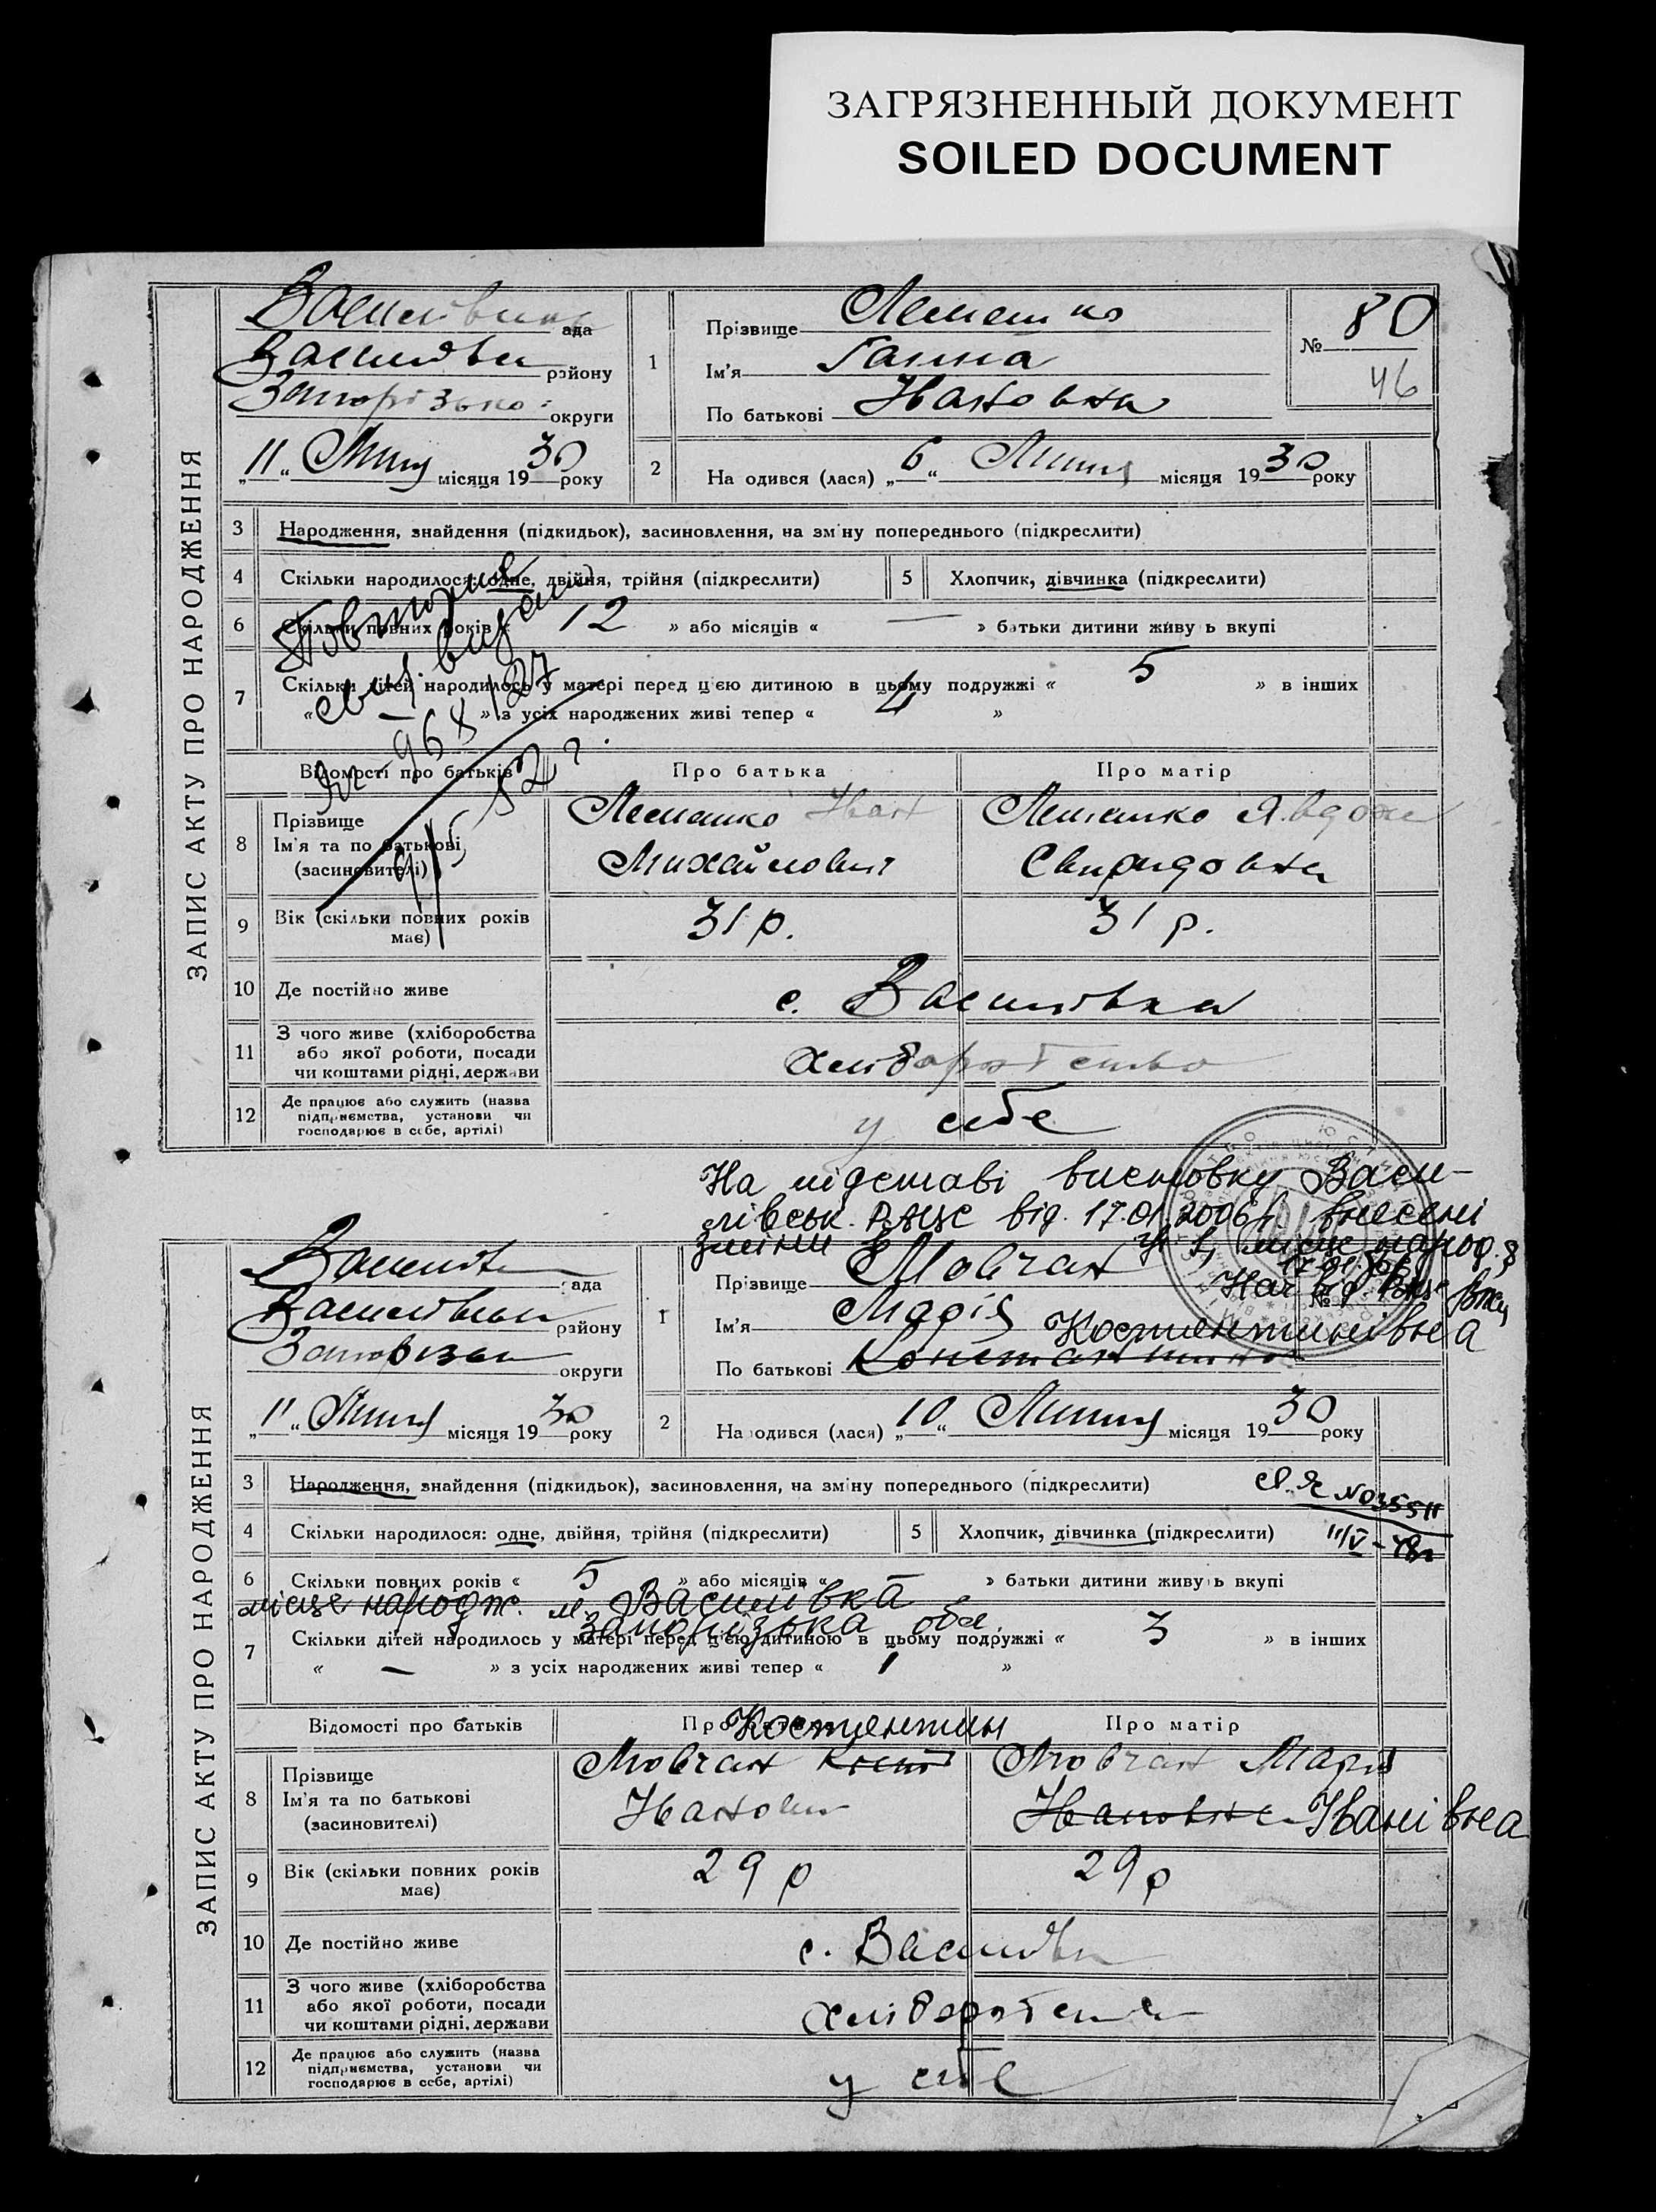 ЗАГРЯЗНЕННЫЙ ДОКУМЕНТ
SOILED DOCUMENT
ЗАПИС АКТУ ПРО НАРОДЖЕННЯ
ада
району
округи
"11" Липня місяця 1930 року
1
Прізвище Лемешко
Ім'я Ганна
По батькові Ивановна
№ 80
46
2
На одився (лася) "6" Липня місяця 1930 року
3 Народження, знайдення (підкидьок), засиновлення, на зміну попереднього (підкреслити)
4 Скільки народилося: одне, двійня, трійня (підкреслити)
5 Хлопчик, дівчинка (підкреслити)
6 Скільки повних років « 12 » або місяців « — » батьки дитини живу ь вкупі
7 Скільки дітей народилось у матері перед цією дитиною в цьому подружжі « 5 » в інших
« — » з усіх народжених живі тепер « 4 »
Відомості про батьків
Про батька
Про матір
8 Прізвище
Ім'я та по батькові
(засиновителі)
Лемешко Иван
Михайлович
Лемешко Явдоха
Свиридовна
9 Вік (скільки повних років має)
31 р.
31 р.
10 Де постійно живе
с. Василівка
11 З чого живе (хліборобства
або якої роботи, посади
чи коштами рідні, держави
хліборобство
12 Де працює або служить (назва
підприємства, установи чи
господарює в себе, артілі)
у себе
На підставі висновку Васи-
лівськ. РАЦС від. 17.01.2006р. внесені
зміни
ЗАПИС АКТУ ПРО НАРОДЖЕННЯ
ада
району
округи
"11" Липня місяця 1930 року
1
Прізвище Мовчан
Ім'я Марія
Костянтинівна
По батькові
№
2
На одився (лася) "10" Липня місяця 1930 року
3 Народження, знайдення (підкидьок), засиновлення, на зміну попереднього (підкреслити)
4 Скільки народилося: одне, двійня, трійня (підкреслити)
5 Хлопчик, дівчинка (підкреслити)
6 Скільки повних років « 5 » або місяців « — » батьки дитини живу ь вкупі
місце народж. м. Василівка
Запорізька обл.
7 Скільки дітей народилось у матері перед цією дитиною в цьому подружжі « 3 » в інших
« — » з усіх народжених живі тепер « 1 »
Відомості про батьків
Костянтин
Про матір
8 Прізвище
Ім'я та по батькові
(засиновителі)
Мовчан
Иванович
Мовчан Марія
Ивановна Іванівна
9 Вік (скільки повних років має)
29 р
29 р
10 Де постійно живе
с. Василівка
11 З чого живе (хліборобства
або якої роботи, посади
чи коштами рідні, держави
хліборобство
12 Де працює або служить (назва
підприємства, установи чи
господарює в себе, артілі)
у себе